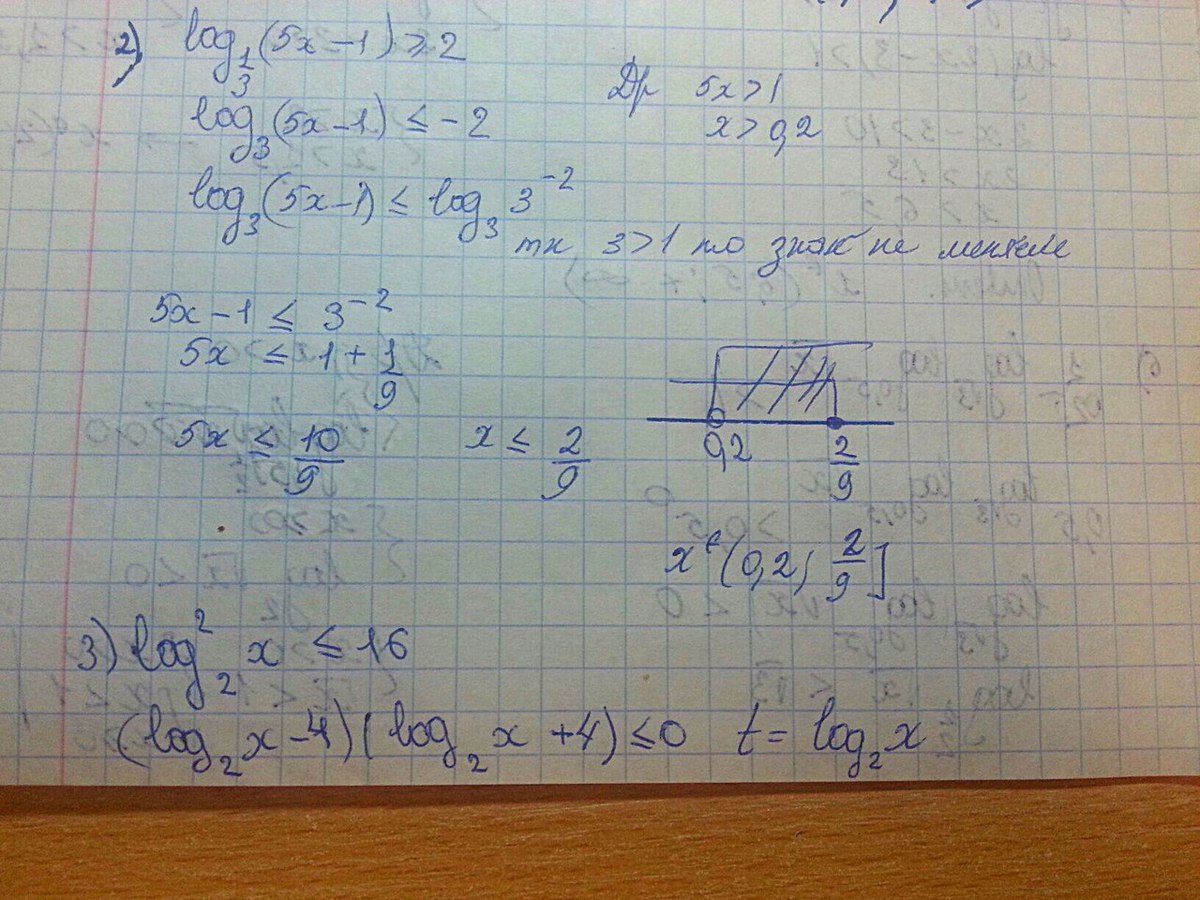 2) log_{1/3}(5x-1) ⩾ 2
Др 5x > 1
log_3(5x-1) ≤ -2
x > 0,2
log_3(5x-1) ≤ log_3 3^{-2}
тк 3>1 то знак не меняем
5x-1 ≤ 3^{-2}
5x ≤ 1 + 1/9
5x ≤ 10/9
x ≤ 2/9
0,2 2/9
x ∈ (0,2; 2/9]
3) log²_2 x ≤ 16
(log_2 x -4)(log_2 x +4) ≤0 t = log_2 x